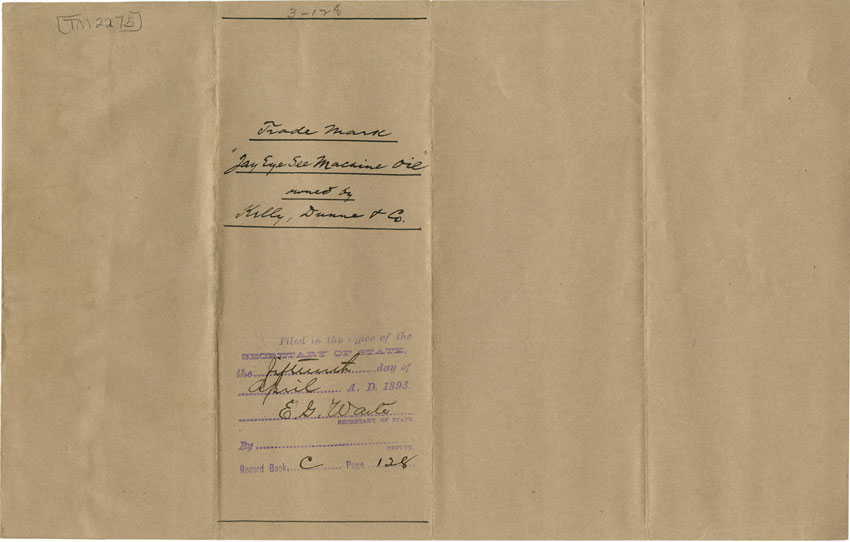 [TM2275]
3-128
Trade Mark
"Jay Eye See Machine Oil"
owned by
Kelly, Dunne & Co.
Filed in the office of the
SECRETARY OF STATE.
the fifteenth day of
April A. D. 1893.
E. G. Waite
SECRETARY OF STATE
By
DEPUTY.
Record Book C Page 128